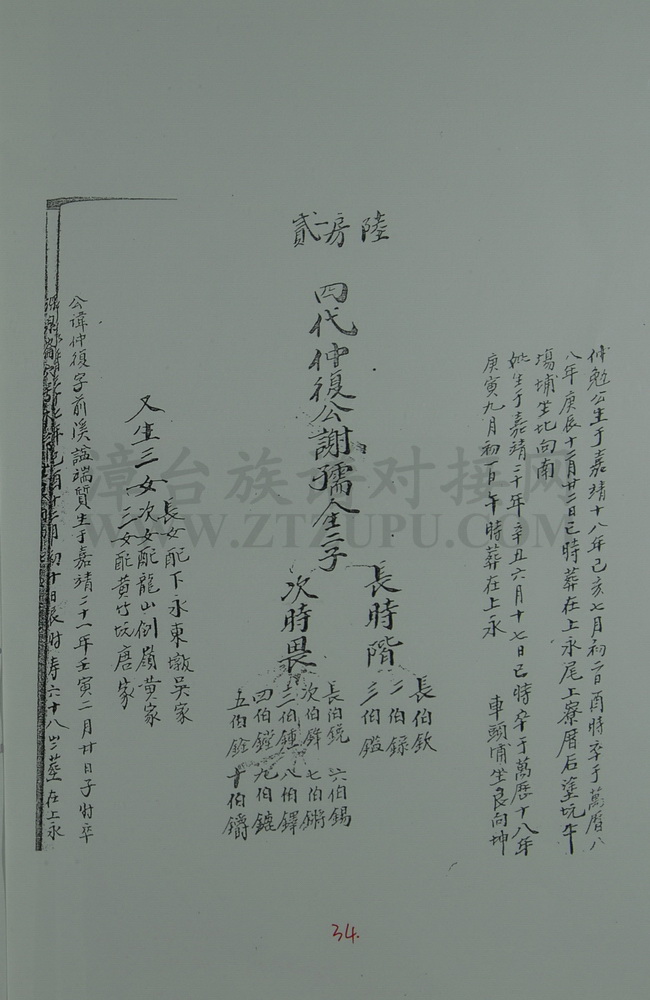 貳房 陸
仲勉公生于嘉靖十八年己亥七月初百酉時卒于萬曆八
八年庚辰十二月廿二日巳時葬在上永尾上寮厝后塗坑牛
塲埔坐北向南
妣生于嘉靖二十年辛丑六月十七日巳時卒于萬曆十八年
庚寅九月初一日午時葬在上永 車頭埔坐艮向坤
四代仲復公謝孺仝二子
長時階
長伯欽
二伯録
三伯鎰
次時畏
長伯銃 六伯錫
次伯鋒 七伯鏘
三伯鍾 八伯鐸
四伯鏜 九伯鏕
五伯銓 十伯鑃
又生三女
長女配下永東墩吳家
次女配龍山倒嶺黃家
三女配黃竹坑唐家
公諱仲復字前溪謚端質生于嘉靖二十一年壬寅二月廿日子时卒
年己酉十二月初十日辰时寿六十八岁塟在上永
34.
漳台族谱对接网
WWW.ZTZUPU.COM